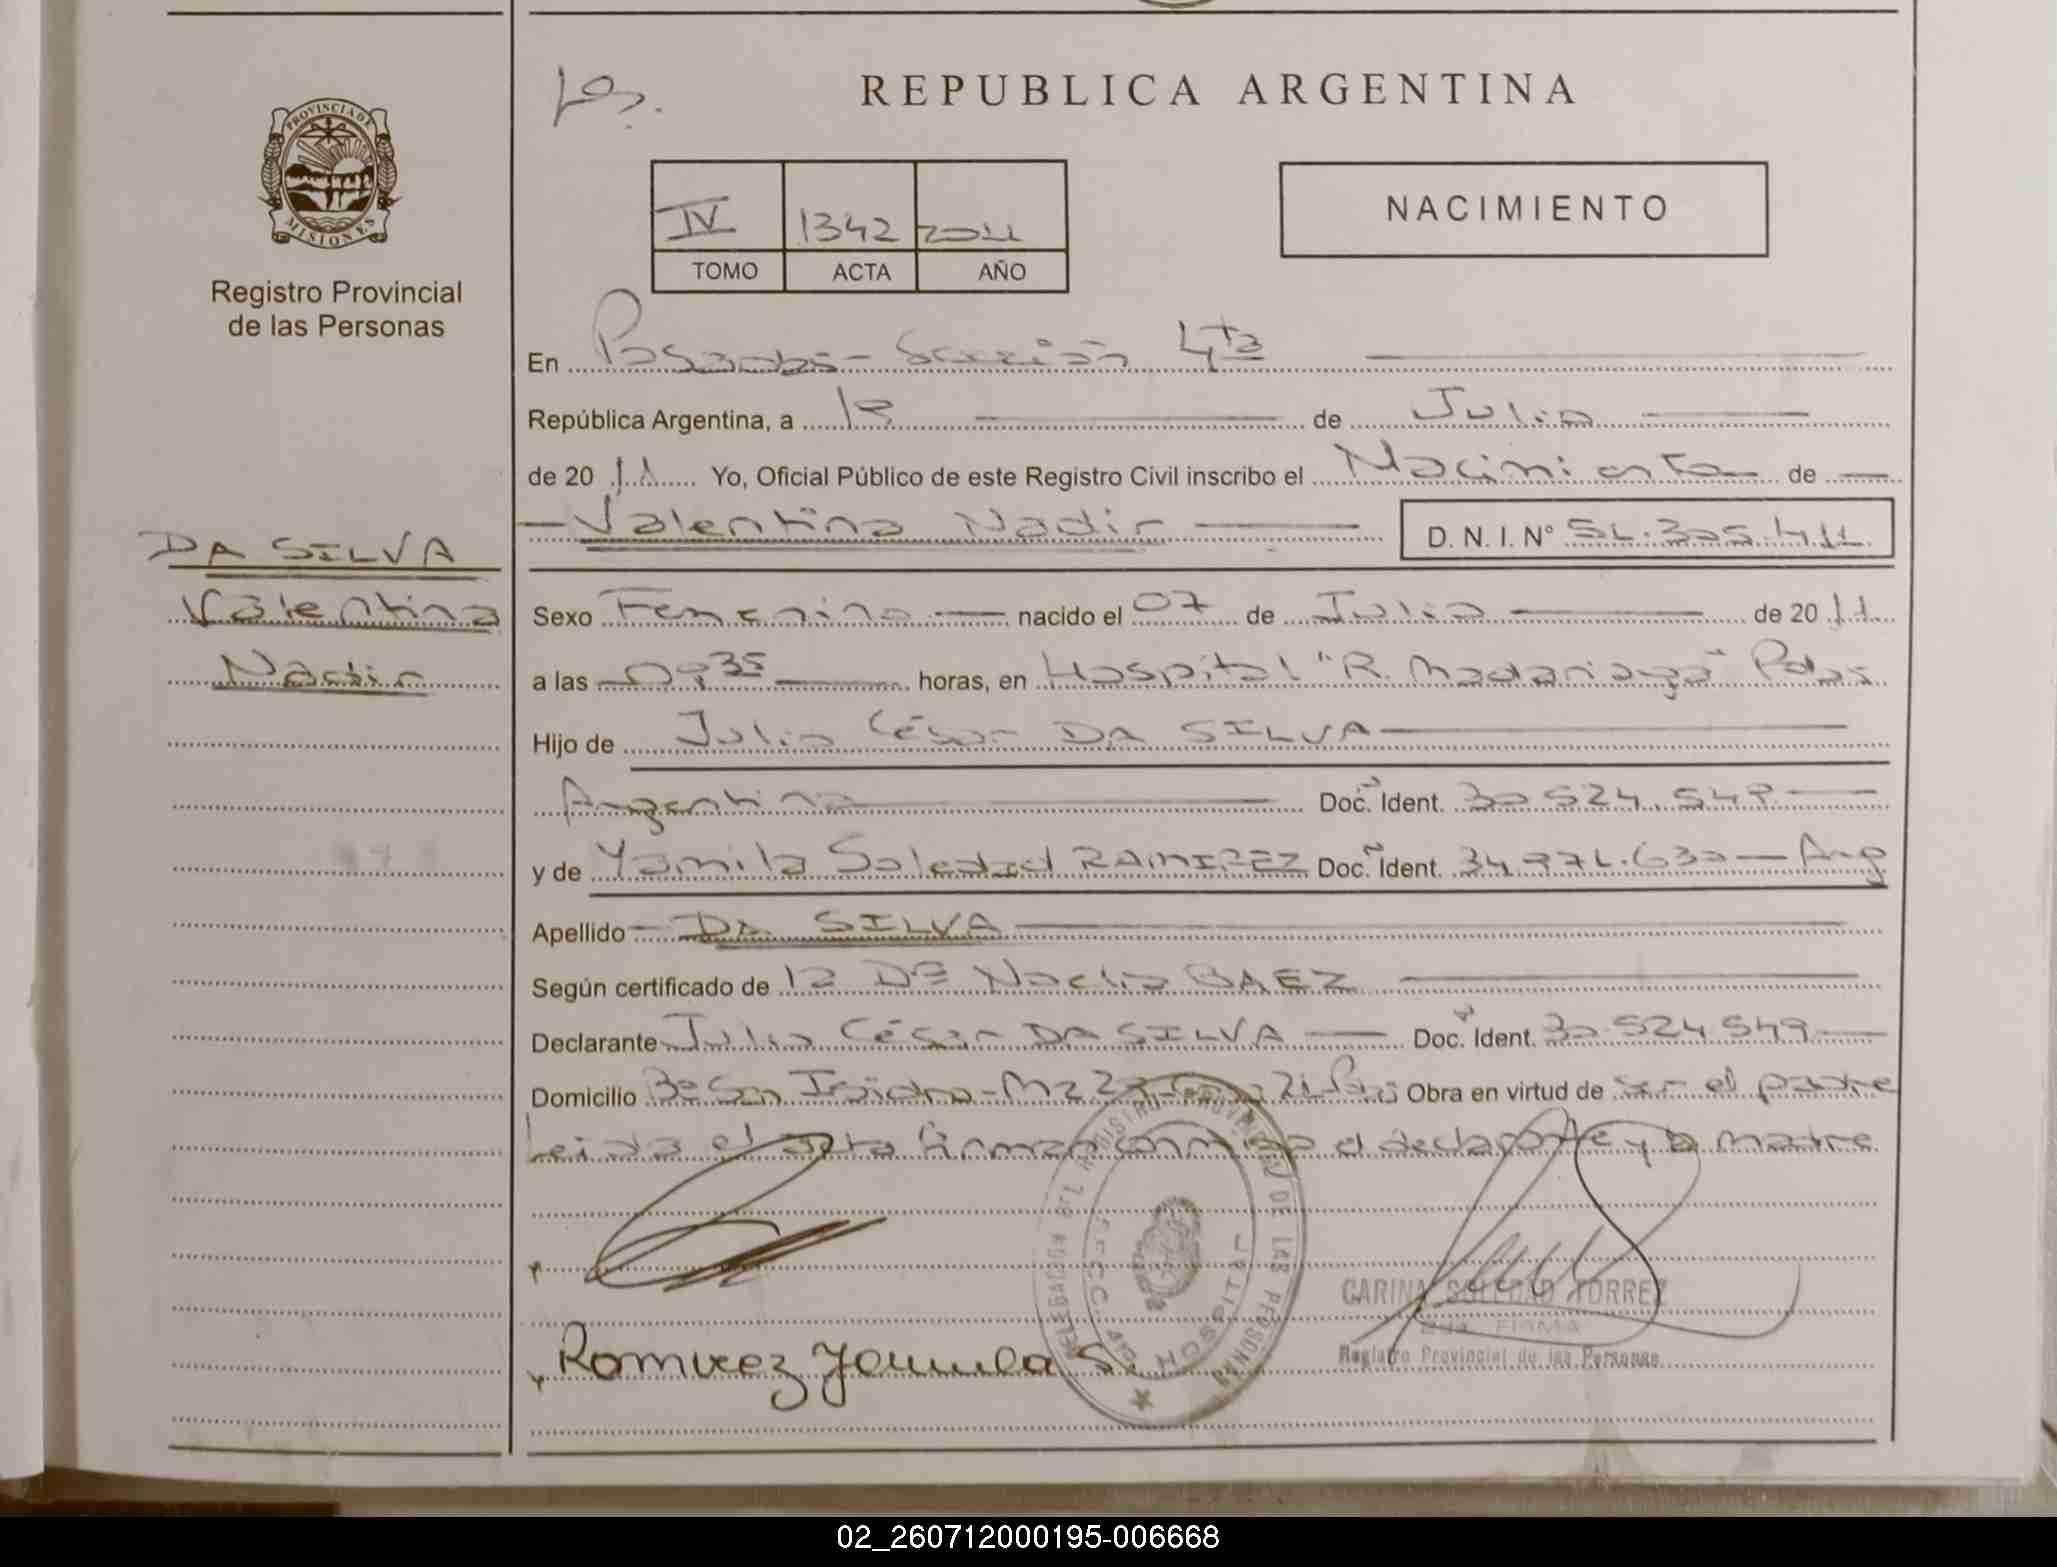 REPUBLICA ARGENTINA
PROVINCIA DE
MISIONES
Registro Provincial
de las Personas
NACIMIENTO
IV 1342 2011
TOMO ACTA AÑO
En Posadas - Sección 4ta
República Argentina, a de Julio
de 2011 Yo, Oficial Público de este Registro Civil inscribo el Nacimiento de
Valentina Nadir D. N. I. Nº
DA SILVA
Valentina
Nadir
Sexo Femenino nacido el 07 de Julio de 2011
a las horas, en Hospital "R. Madariaga" Pdas
Hijo de Julio César DA SILVA
Argentino Doc. Ident. 30.524.549
y de Yamila Soledad RAMIREZ Doc. Ident. Arg
Apellido DA SILVA
Según certificado de BAEZ
Declarante Julio César DA SILVA Doc. Ident. 30.524.549
Domicilio Bº San Isidro - Mz Obra en virtud de ser el padre
Leída el acta firman conmigo el declarante y la madre
DELEGACION DEL REGISTRO PROVINCIAL DE LAS PERSONAS
HOSPITAL
CARINA SOLEDAD TORREZ
2da FIRMA
Registro Provincial de las Personas
Ramirez Yamila S.
02_260712000195-006668